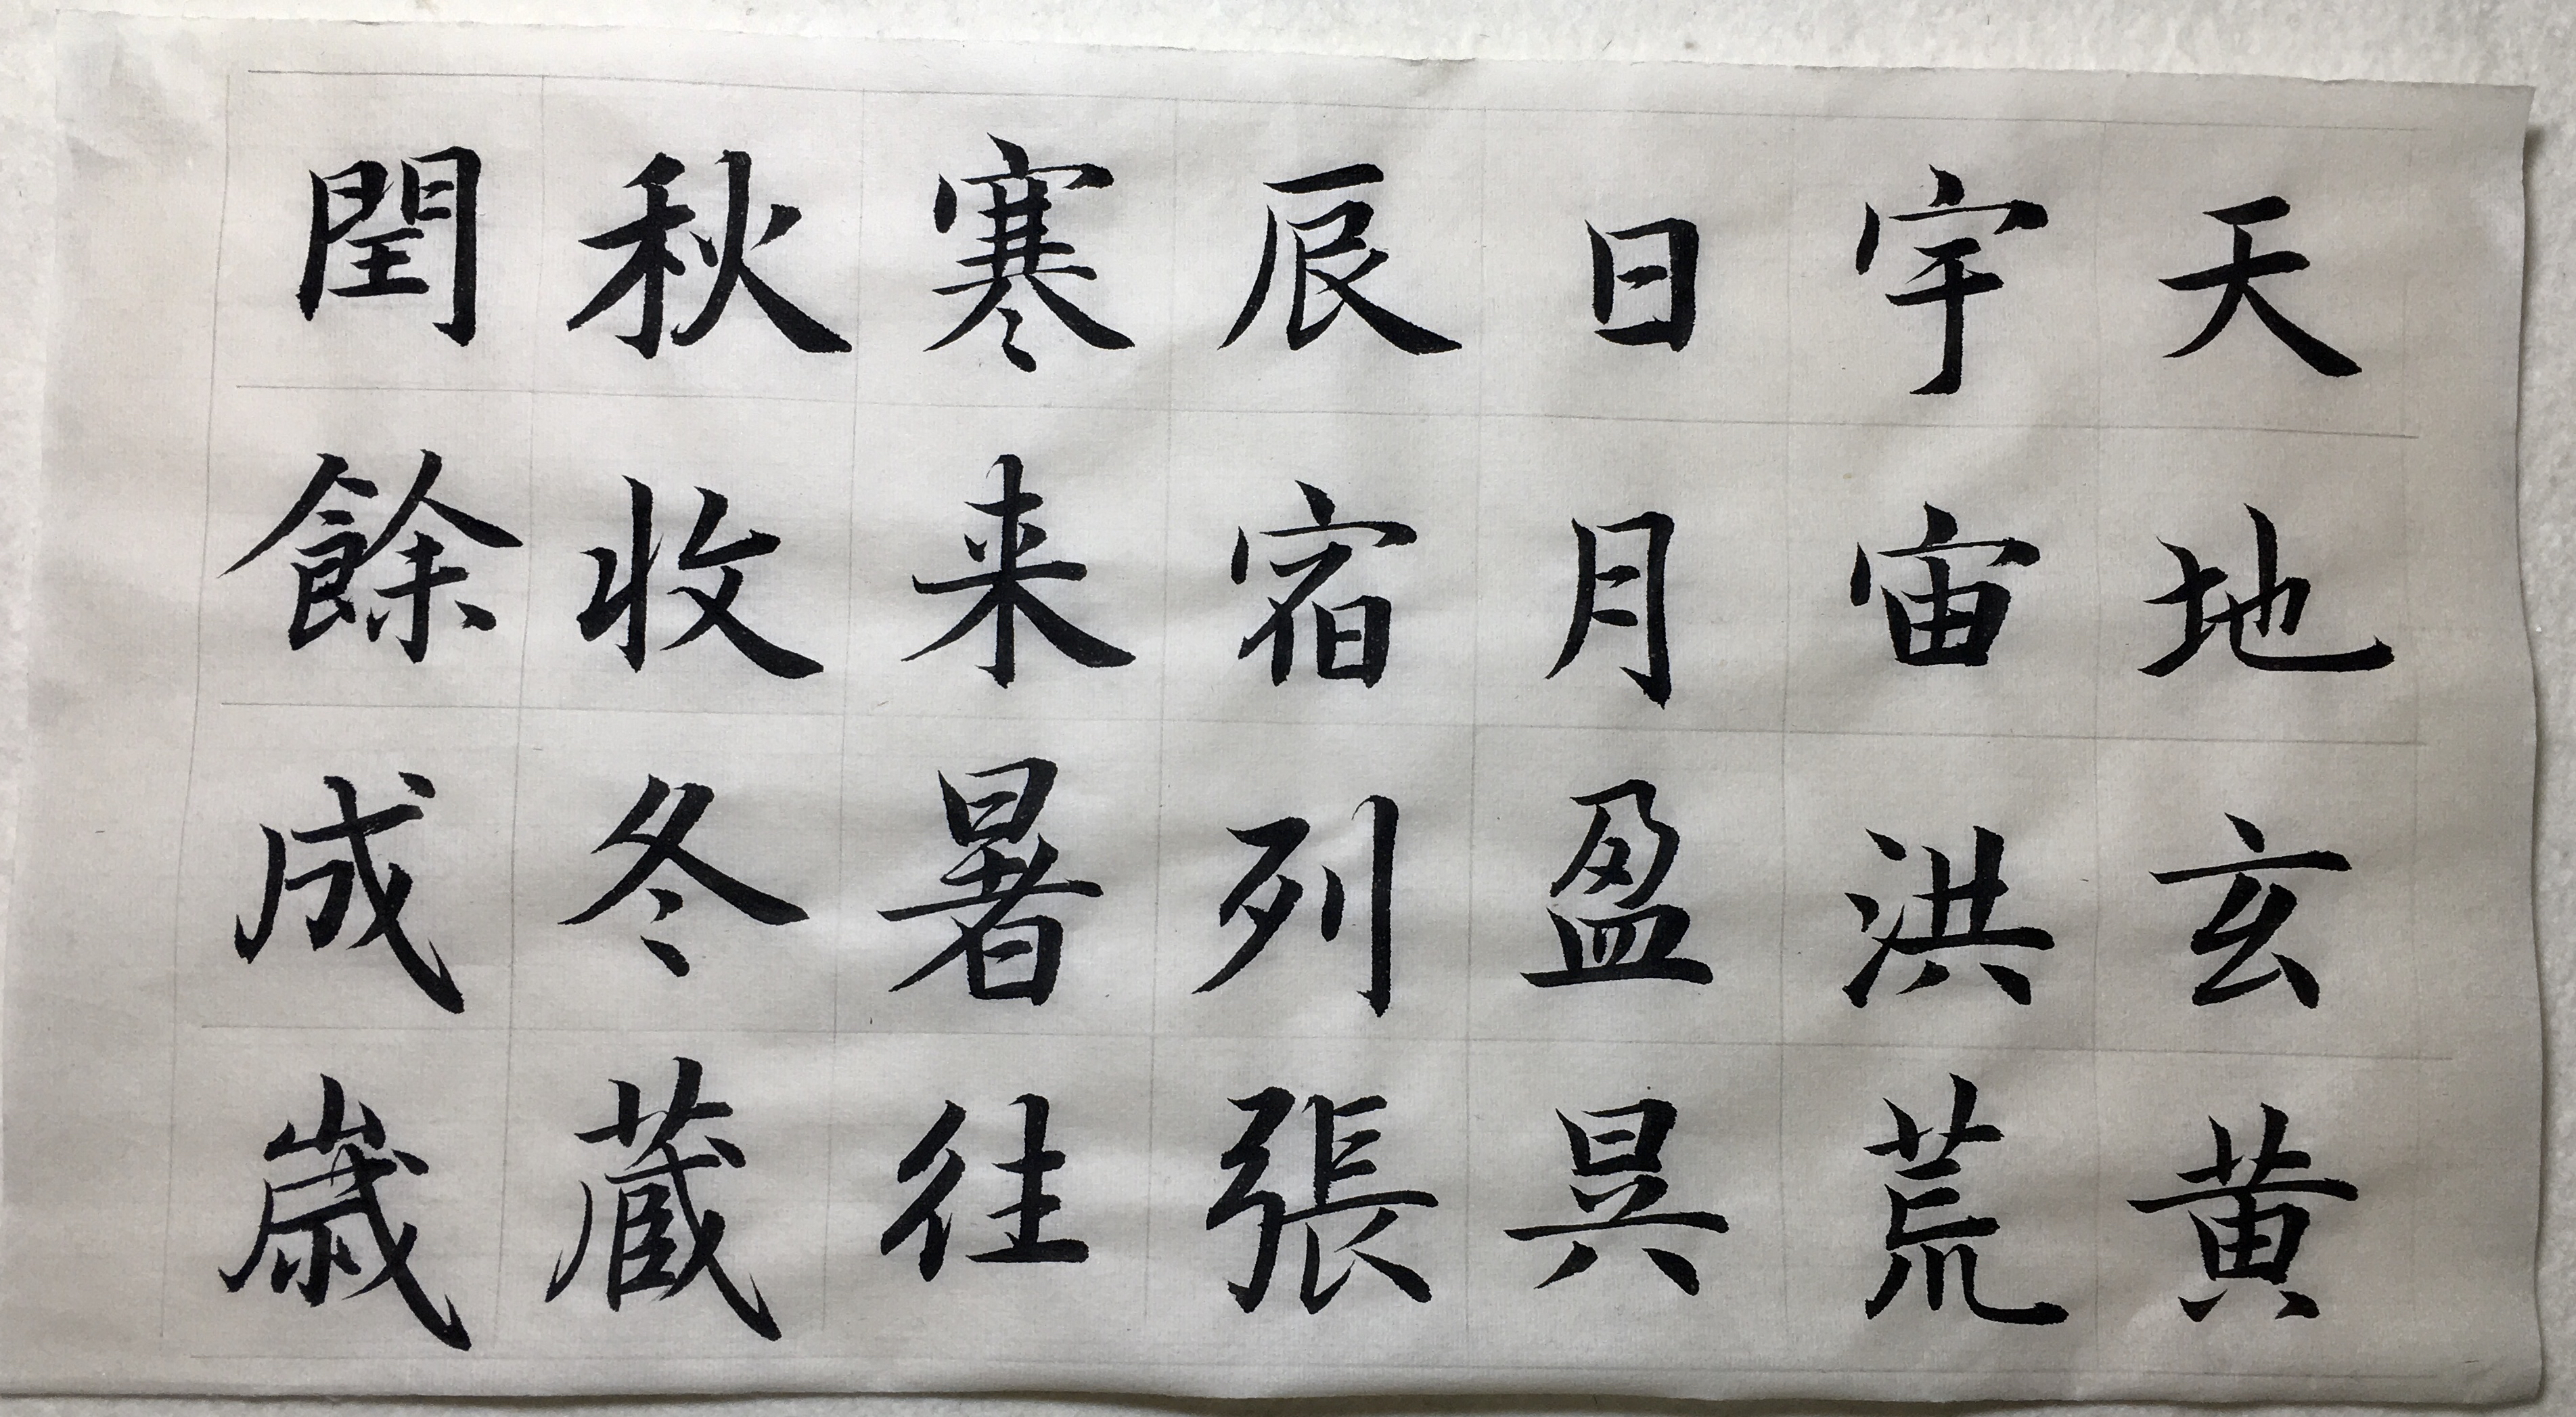 天地玄黄
宇宙洪荒
日月盈昃
辰宿列張
寒来暑往
秋收冬蔵
閏餘成歳